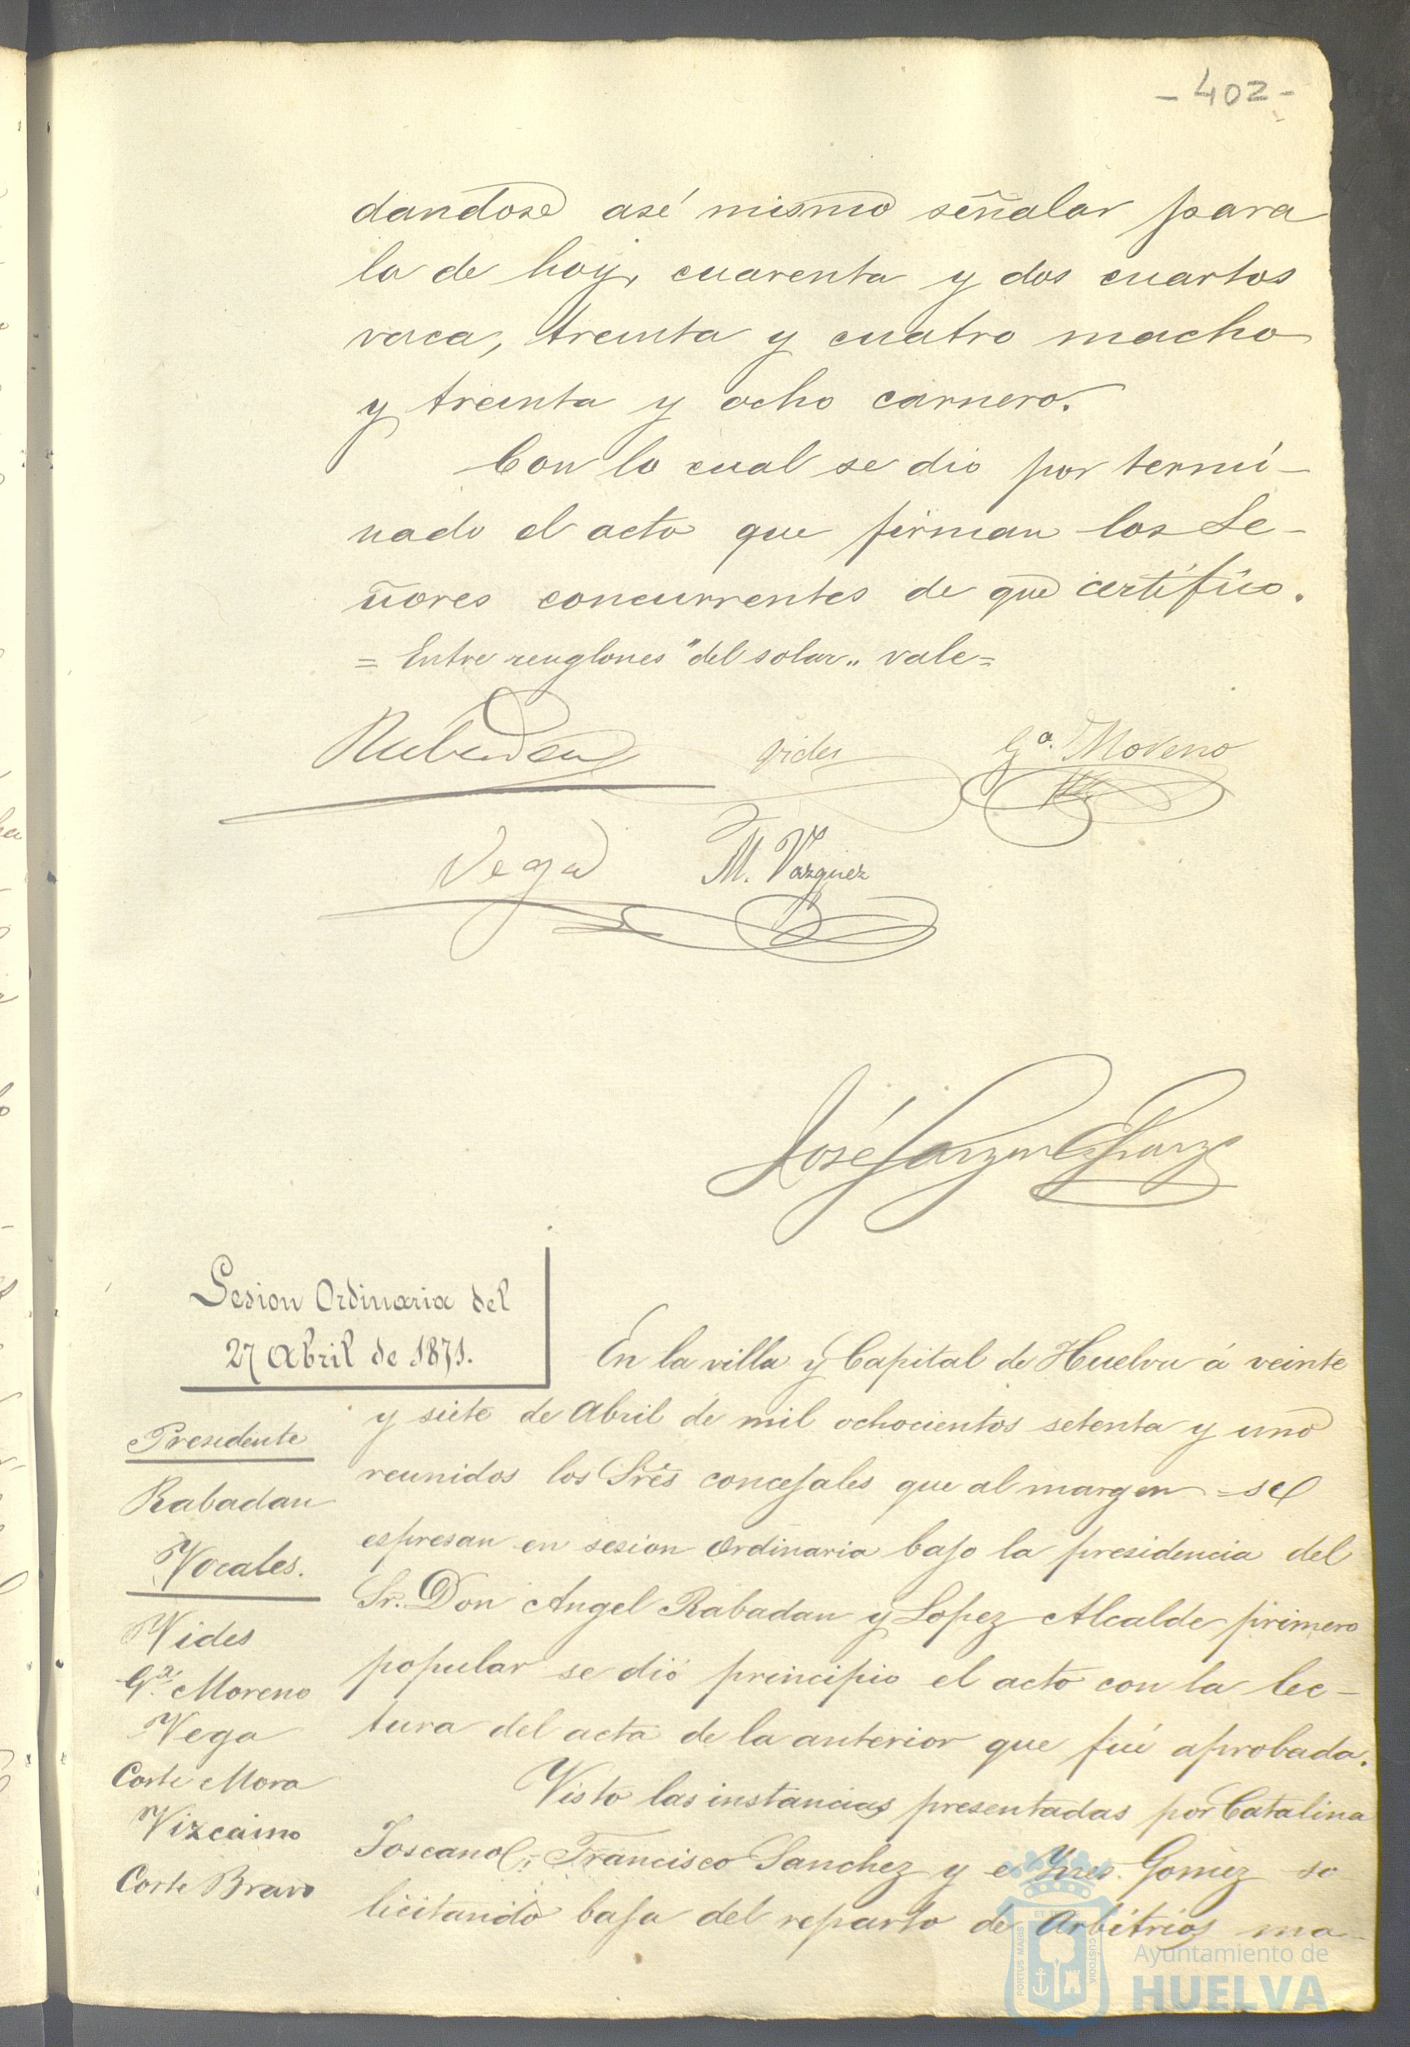 - 402 -
dandose asé mismo señalar para
la de hoy, cuarenta y dos cuartos
vaca, treinta y cuatro macho
y treinta y ocho carnero.
Con lo cual se dio por termi-
nado el acto que firman los Se-
ñores concurrentes de que certifico.
= Entre renglones "del solar" vale=
Rabadan Vides Gª. Moreno
Vega M. Vazquez
José
Sesion Ordinaria del
27 Abril de 1871.
Presidente
Rabadan
Vocales.
Vides
Gª. Moreno
Vega
Corte Mora
Vizcaino
Corte Bravo
En la villa y Capital de Huelva á veinte
y siete de Abril de mil ochocientos setenta y uno
reunidos los Sres concejales que al margen = se
espresan en sesion Ordinaria bajo la presidencia del
Sr. Don Angel Rabadan y Lopez Alcalde primero
popular se dió principio el acto con la lec-
tura del acta de la anterior que fué aprobada.
Visto las instancias presentadas por Catalina
Toscano, Francisco Sanchez y e Ynes. Gomez so
licitando baja del reparto de Arbitrios ma-
PORTUS MARIS ET TERRAE CUSTODIA
Ayuntamiento de
HUELVA